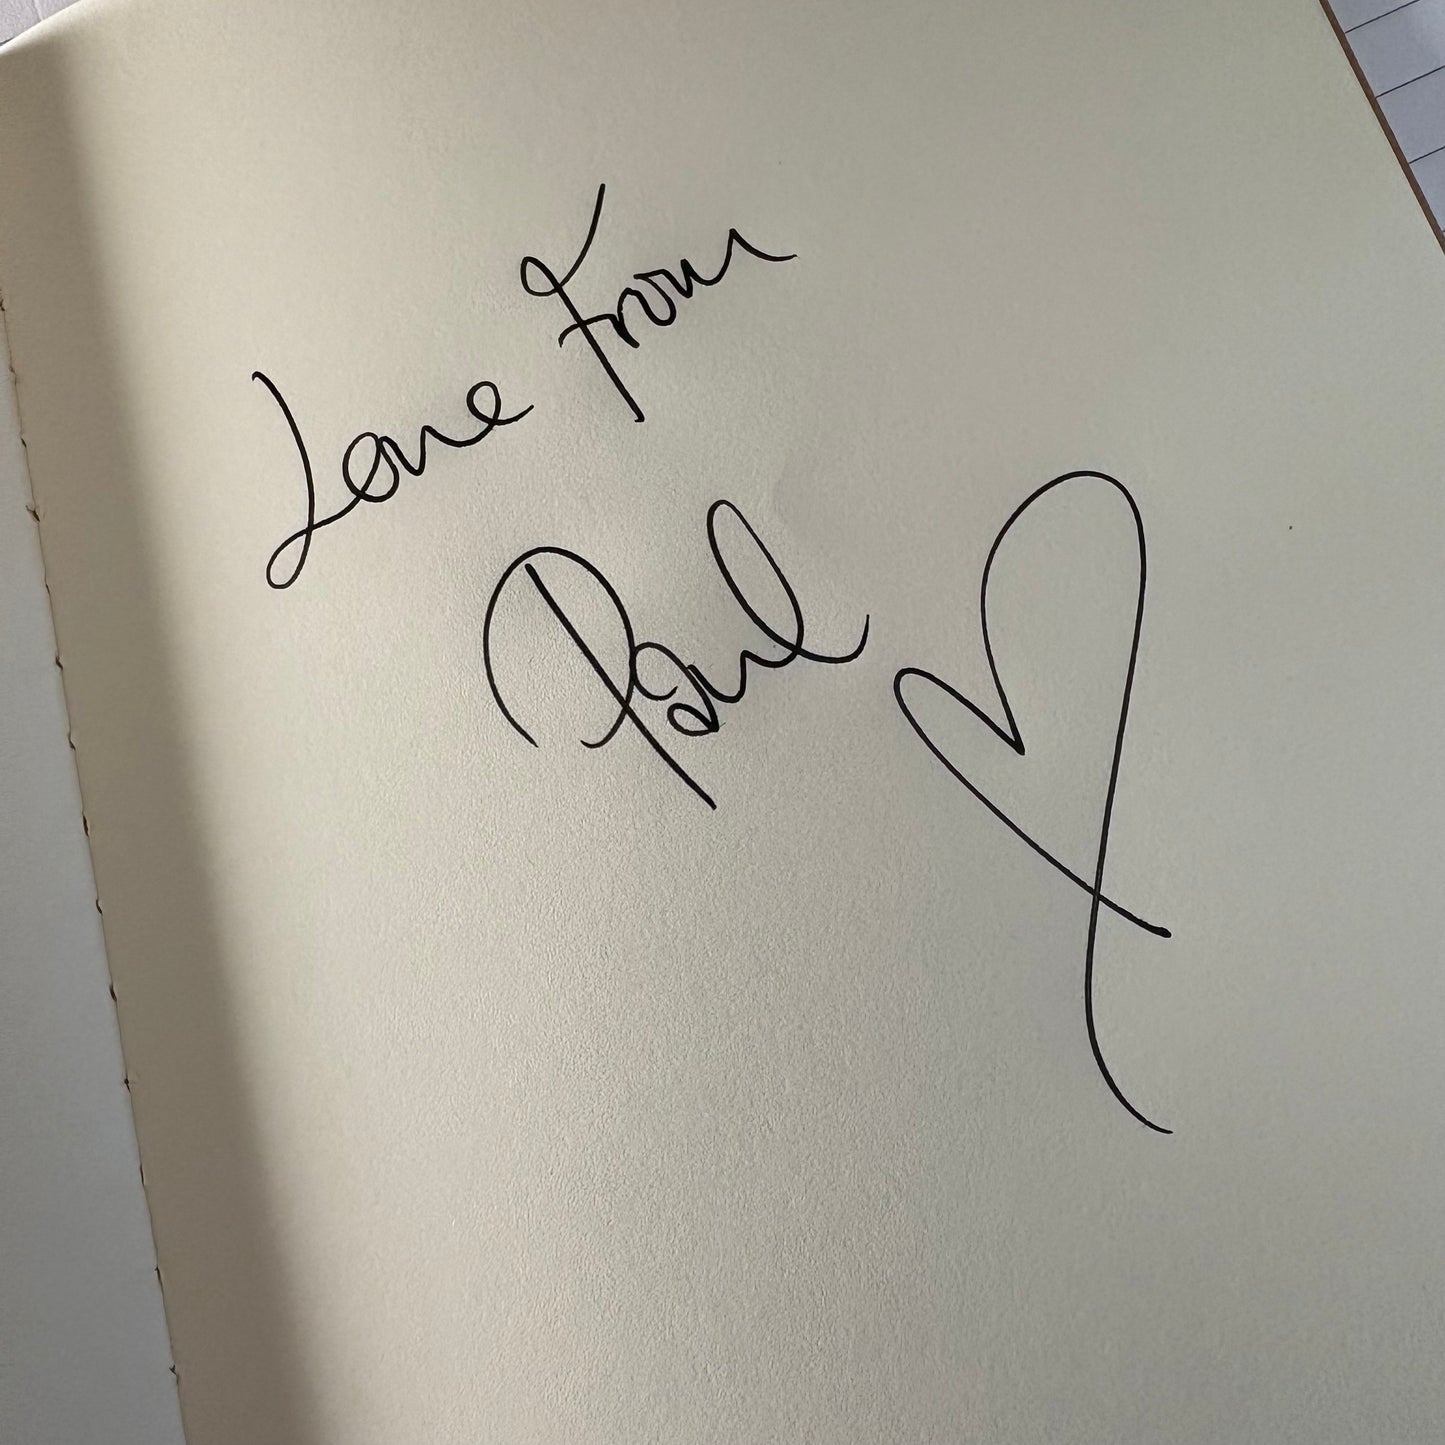 Love From
Paul